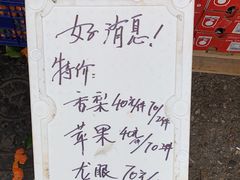 好消息！
特价：
香梨40元/件 70/2件
苹果40元/件/70 2件
龙眼 70元/